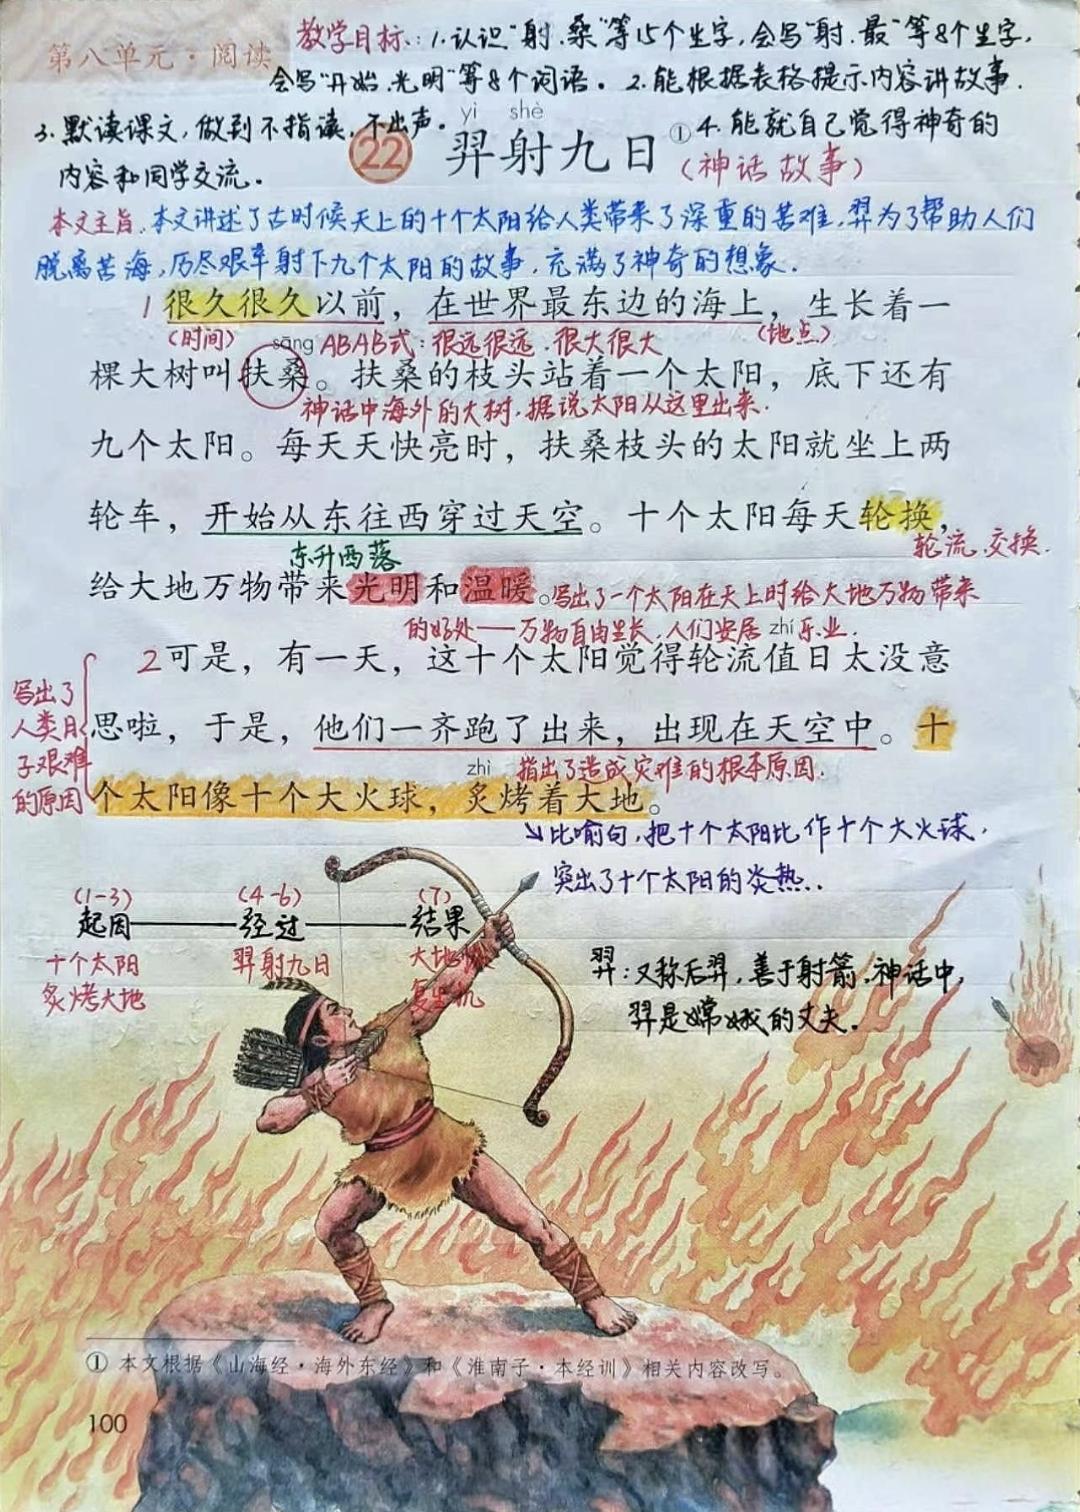 第八单元·阅读
教学目标:1.认识“射、桑”等15个生字,会写“射、最”等8个生字,
会写“开始、光明”等8个词语。2.能根据表格提示内容讲故事.
3.默读课文,做到不指读,不出声。
yì shè
22 羿射九日①
4.能就自己觉得神奇的
内容和同学交流.
(神话故事)
本文主旨.本文讲述了古时候天上的十个太阳给人类带来了深重的苦难,羿为了帮助人们
脱离苦海,历尽艰辛射下九个太阳的故事,充满了神奇的想象.
1很久很久以前,在世界最东边的海上,生长着一
(时间) sāng ABAB式:很远很远、很大很大 (地点)
棵大树叫扶桑。扶桑的枝头站着一个太阳,底下还有
神话中海外的大树,据说太阳从这里出来.
九个太阳。每天天快亮时,扶桑枝头的太阳就坐上两
轮车,开始从东往西穿过天空。十个太阳每天轮换,
东升西落
轮流、交换.
给大地万物带来光明和温暖。
写出了一个太阳在天上时给大地万物带来
的好处——万物自由生长,人们安居乐业.
zhí
2可是,有一天,这十个太阳觉得轮流值日太没意
思啦,于是,他们一齐跑了出来,出现在天空中。十
写出了
人类日
子艰难
的原因
zhì 指出了造成灾难的根本原因.
个太阳像十个大火球,炙烤着大地。
↘比喻句,把十个太阳比作十个大火球,
突出了十个太阳的炎热..
(1-3) (4-6) (7)
起因——经过——结果
十个太阳 羿射九日 大地
炙烤大地 复生机
羿:又称后羿,善于射箭.神话中,
羿是嫦娥的丈夫.
① 本文根据《山海经·海外东经》和《淮南子·本经训》相关内容改写。
100